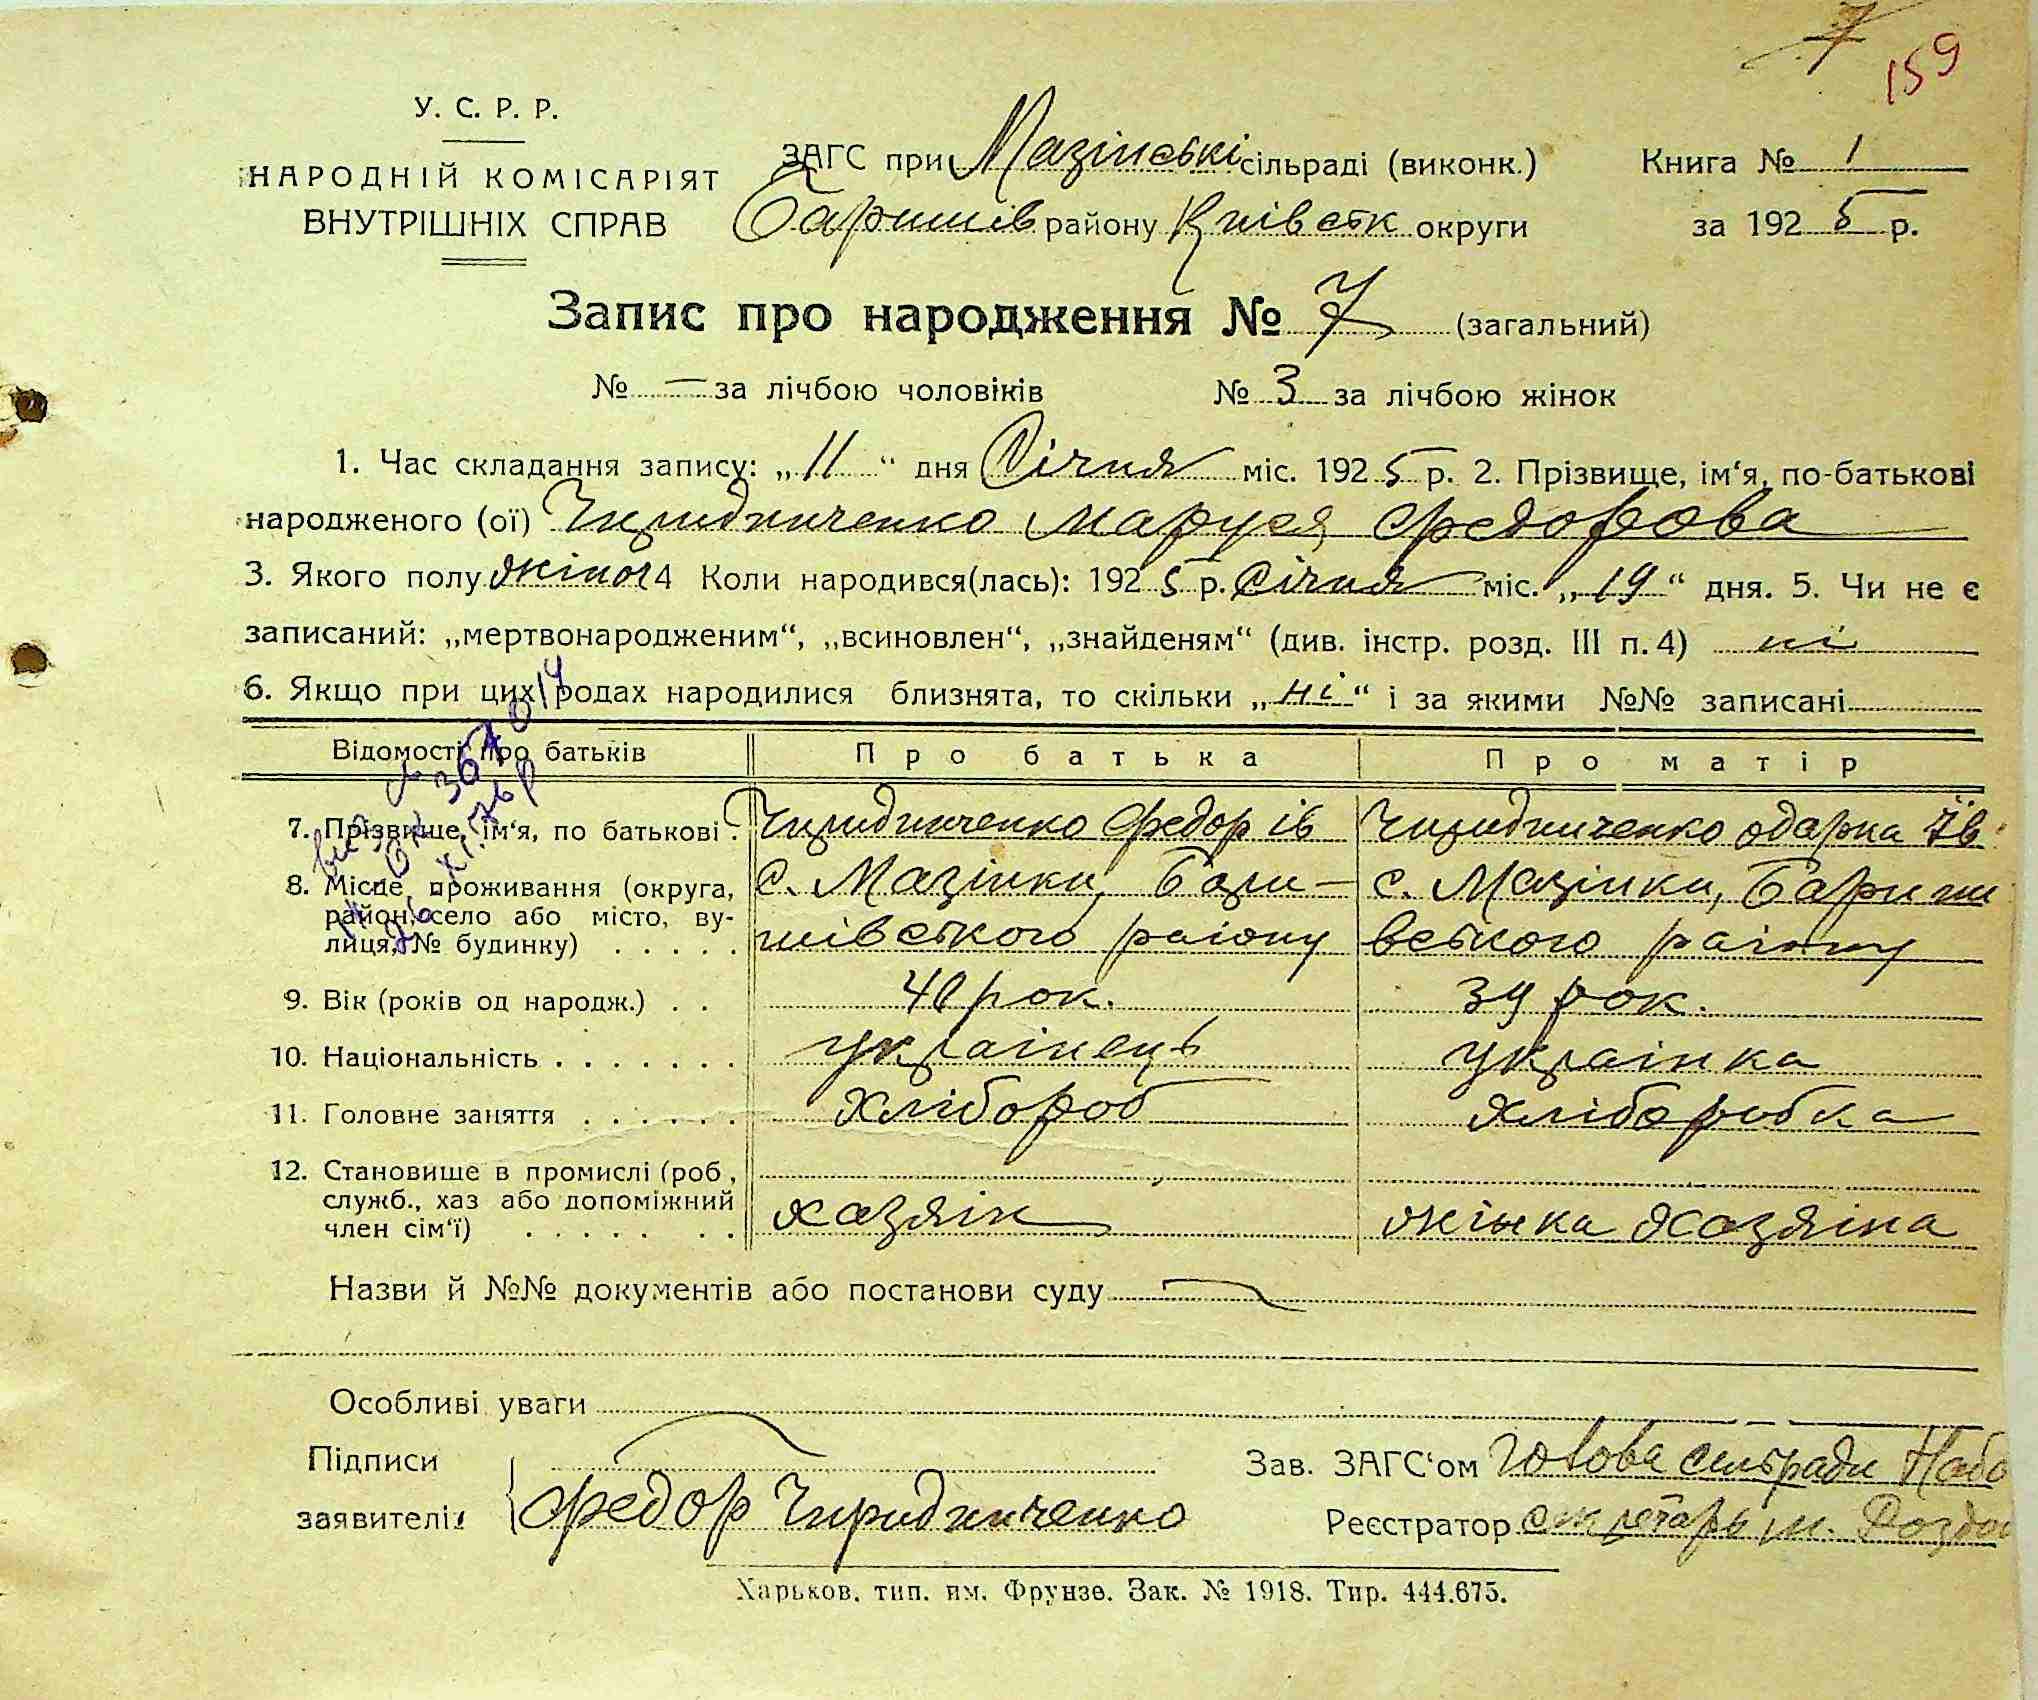 7
159
У. С. Р. Р.
НАРОДНІЙ КОМІСАРІЯТ
ВНУТРІШНІХ СПРАВ
ЗАГС при Мазінські сільраді (виконк.)
Баришів району Київськ округи
Книга № 1
за 1925 р.
Запис про народження № 7 (загальний)
№ — за лічбою чоловіків № 3 за лічбою жінок
1. Час складання запису: „11“ дня Січня міс. 1925 р. 2. Прізвище, ім‘я, по-батькові
народженого (ої) Чиридниченко Маруся Федорова
3. Якого полу жіноч 4 Коли народився(лась): 1925 р. Січня міс. „19“ дня. 5. Чи не є
записаний: „мертвонародженим“, „всиновлен“, „знайденям“ (див. інстр. розд. III п. 4) ні
6. Якщо при цих родах народилися близнята, то скільки „ні“ і за якими №№ записані
Відомості про батьків Про батька Про матір
7. Прізвище, ім‘я, по батькові . Чиридниченко Федор ів Чиридниченко Одарка Ів
8. Місце проживання (округа,
район, село або місто, ву-
лиця, № будинку) . . . . .
с. Мазінки, Бари-
шівського раіону
с. Мазінки, Бариши
вського раіону
9. Вік (років од народж.) . . 40 рок. 39 рок.
10. Національність . . . . . . . украінець украінка
11. Головне заняття . . . . . . хлібороб хліборобка
12. Становище в промислі (роб,
служб., хаз або допоміжний
член сім‘ї) . . . . . . .
хазяін жінка хазяіна
Назви й №№ документів або постанови суду
Особливі уваги
Підписи
заявителів
Федор Чиридниченко
Зав. ЗАГС‘ом Голова сильради Набо
Реєстратор секретарь
Харьков, тип. им. Фрунзе. Зак. № 1918. Тир. 444.675.